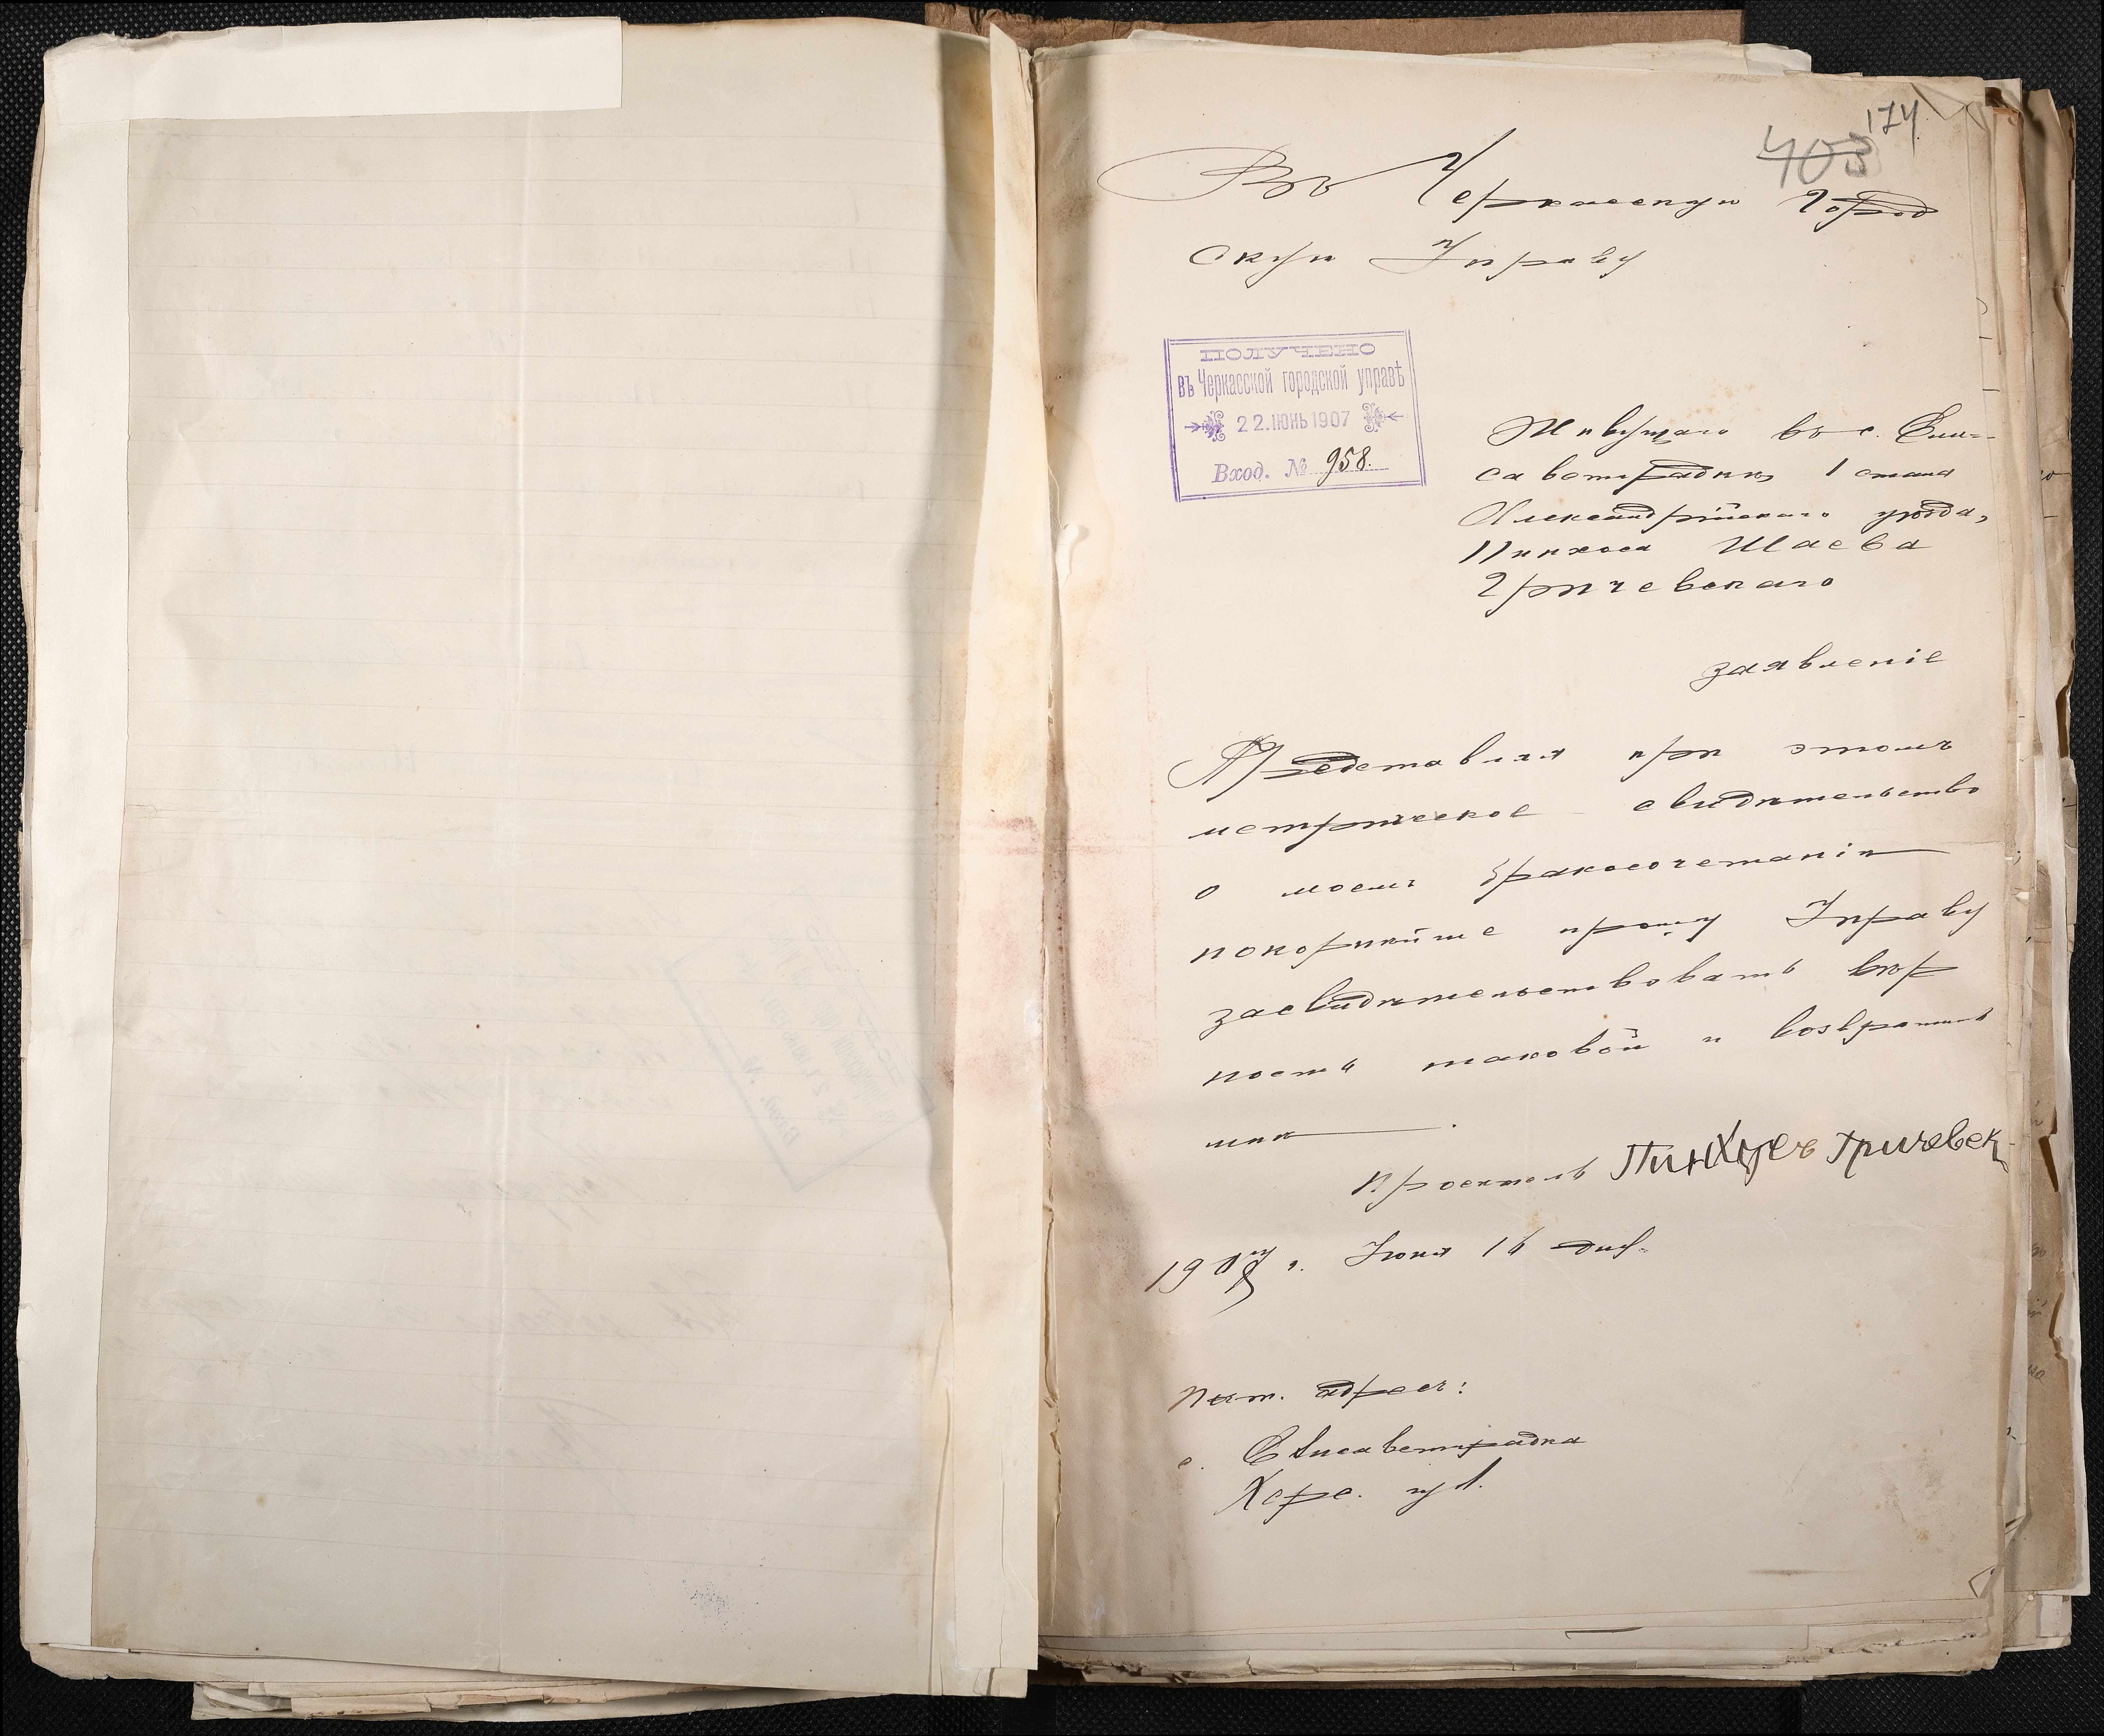 174
403
Въ Черкасскую Город
скую Управу
ПОЛУЧЕНО
въ Черкасской городской управѣ
22.ІЮНЬ1907
Вход. № 958.
Живущаго въ с. Ели-
саветградкѣ, 1 стана
Александрійскаго уѣзда,
Пинхоса Шаева
Гричевскаго
заявленіе
Представляя при этомъ
метрическое свидѣтельство
о моемъ бракосочетаніи
покорнѣйше прошу Управу
засвидѣтельствовать вѣр
ность таковой и возвратить
мнѣ.
Проситель Пинхусъ Гричевск
1907 г. Іюня 16 дня.
адресъ:
с. Елисаветградка
Херс. губ.